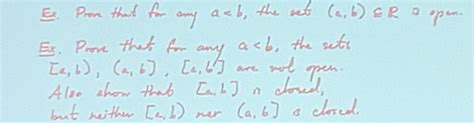 Ex. Prove that for any a < b, the set (a, b) ⊆ ℝ is open.
Ex. Prove that for any a < b, the sets
[a, b), (a, b], [a, b] are not open.
Also show that [a, b] is closed,
but neither [a, b) nor (a, b] is closed.